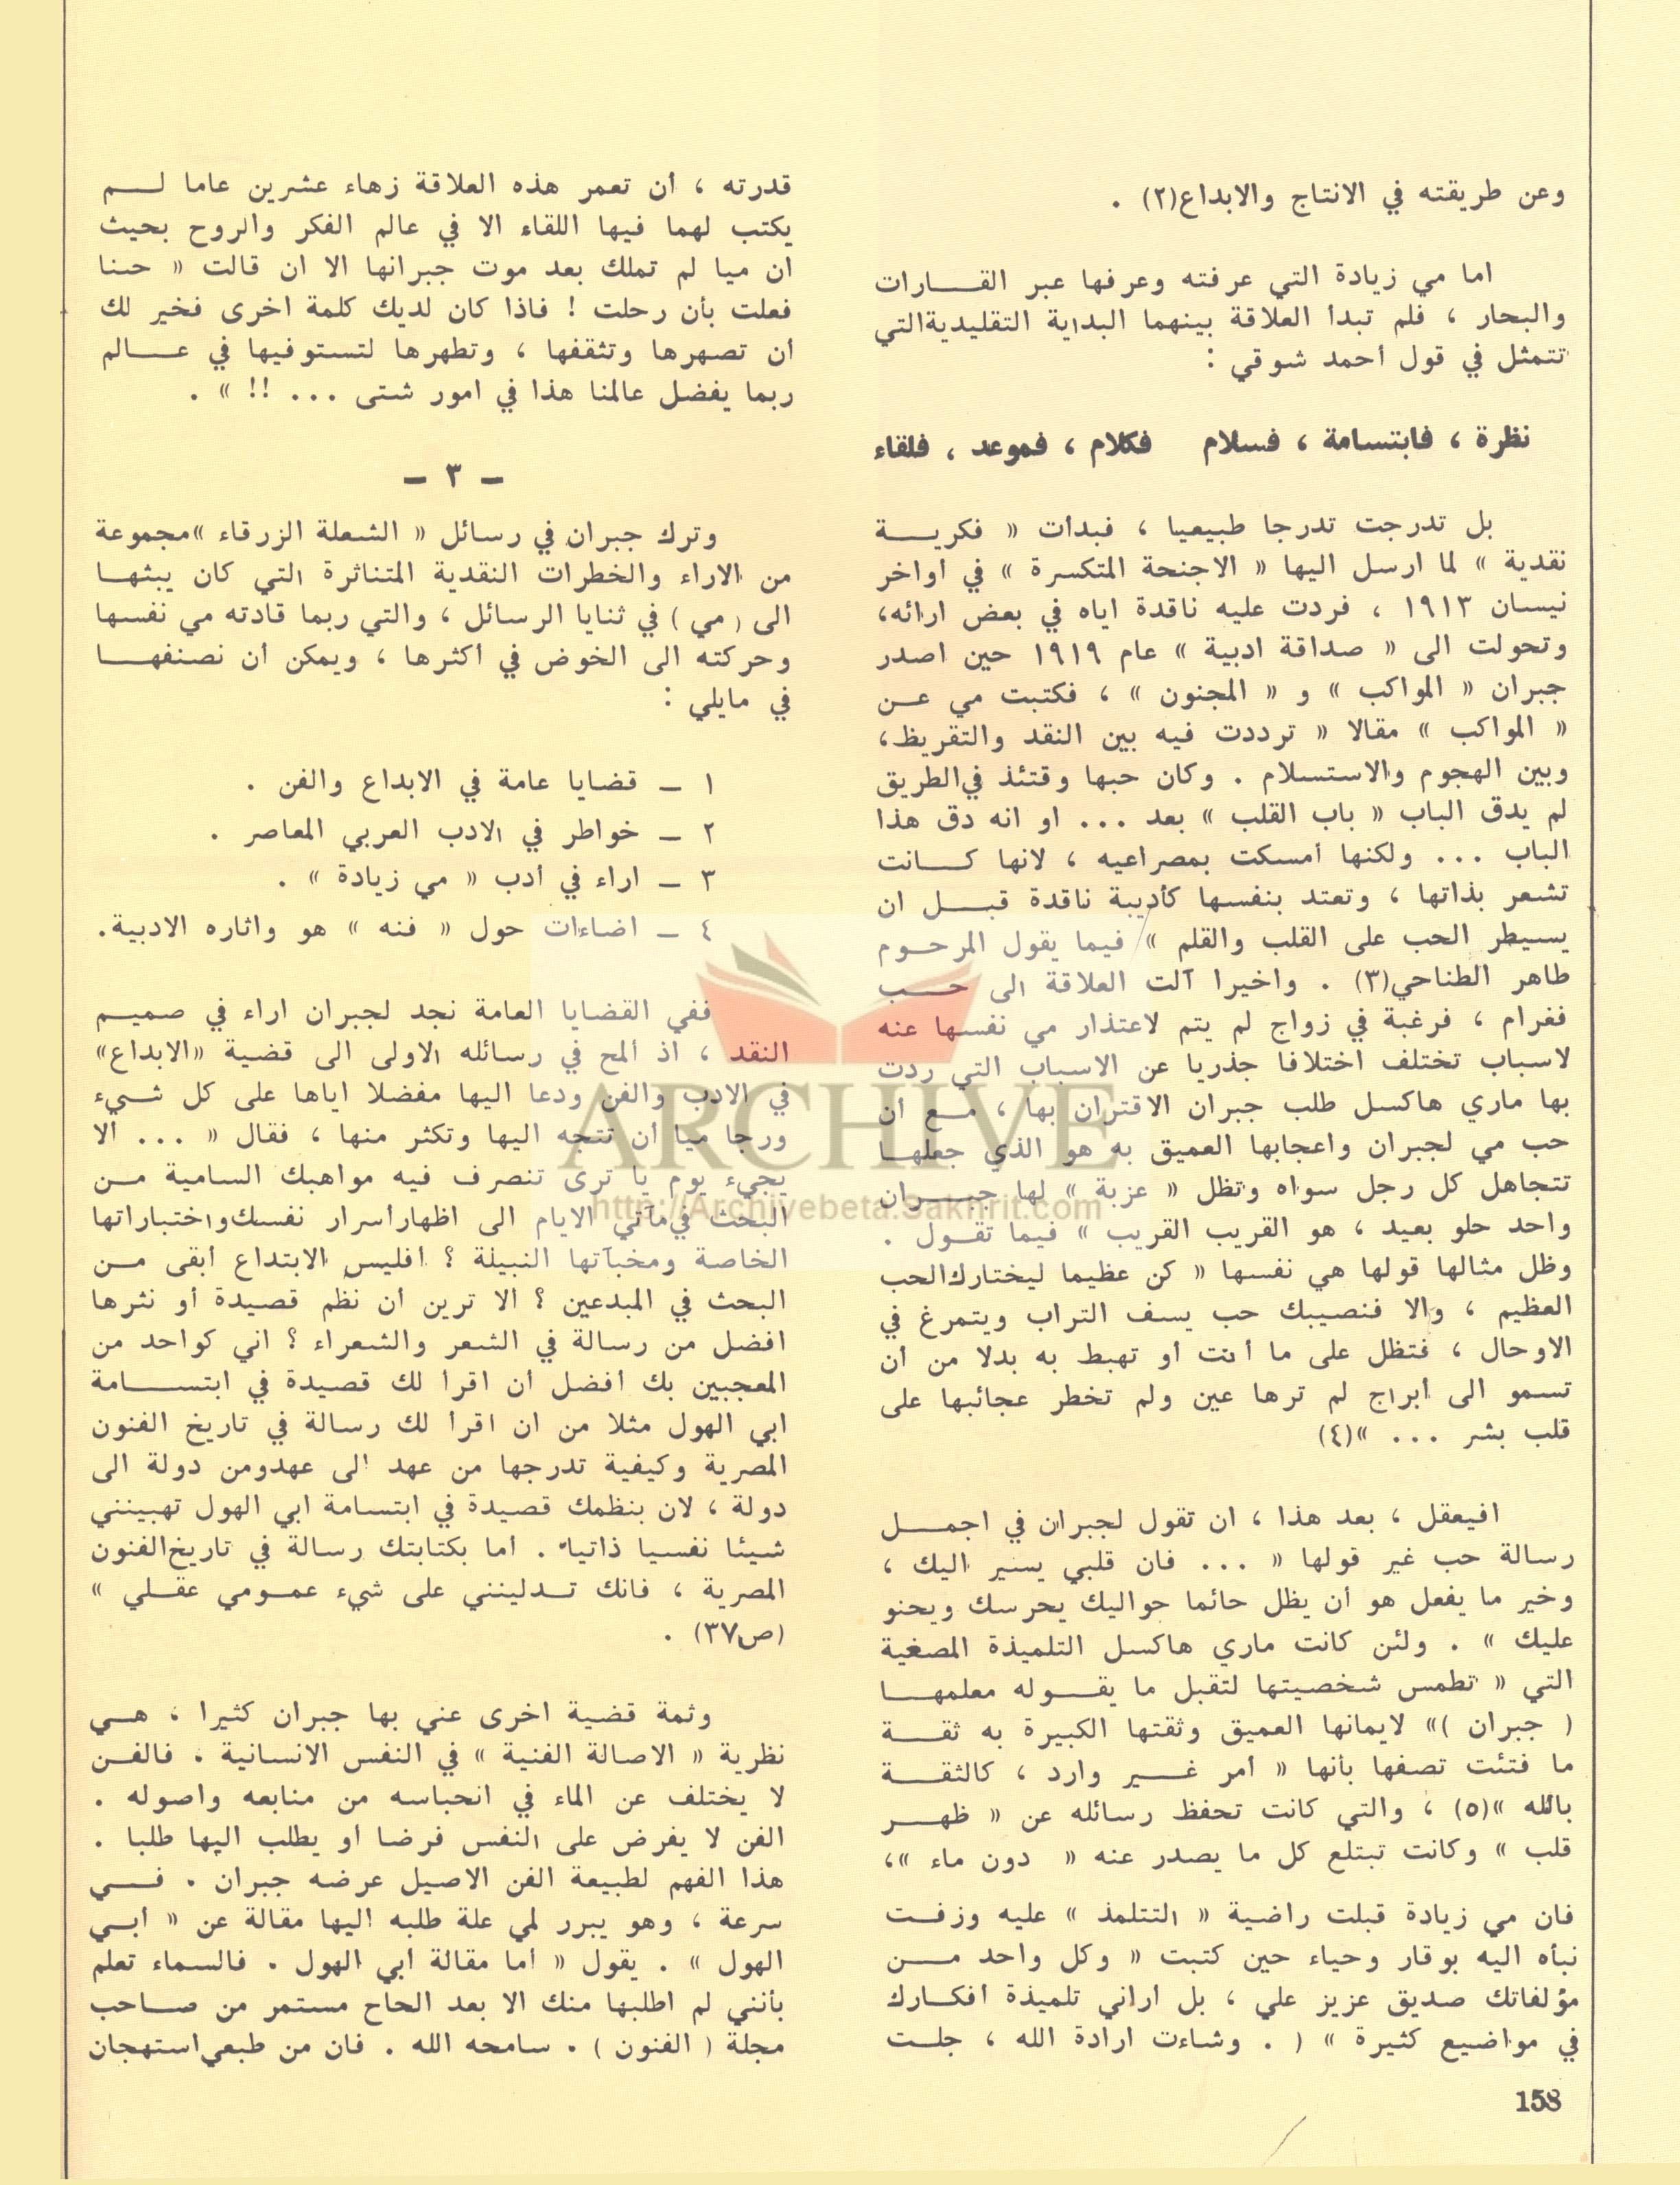 وعن طريقته في الانتاج والابداع(٢) .
اما مي زيادة التي عرفته وعرفها عبر القـــارات
والبحار ، فلم تبدأ العلاقة بينهما البداية التقليديةالتي
تتمثل في قول أحمد شوقي :
نظرة ، فابتسامة ، فسلام فكلام ، فموعد ، فلقاء
بل تدرجت تدرجا طبيعيا ، فبدأت « فكريـــة
نقدية » لما ارسل اليها « الاجنحة المتكسرة » في أواخر
نيسان ١٩١٣ ، فردت عليه ناقدة اياه في بعض ارائه،
وتحولت الى « صداقة ادبية » عام ١٩١٩ حين اصدر
جبران « المواكب » و « المجنون » ، فكتبت مي عــن
« المواكب » مقالا « ترددت فيه بين النقد والتقريظ،
وبين الهجوم والاستسلام . وكان حبها وقتئذ في الطريق
لم يدق الباب « باب القلب » بعد ... او انه دق هذا
الباب ... ولكنها أمسكت بمصراعيه ، لانها كـــانت
تشعر بذاتها ، وتعتد بنفسها كأديبة ناقدة قبـــل ان
يسيطر الحب على القلب والقلم » فيما يقول المرحــوم
طاهر الطناحي(٣) . واخيرا آلت العلاقة الى حـــب
فغرام ، فرغبة في زواج لم يتم لاعتذار مي نفسها عنه
لاسباب تختلف اختلافا جذريا عن الاسباب التي ردت
بها ماري هاكسل طلب جبران الاقتران بها ، مــع أن
حب مي لجبران واعجابها العميق به هو الذي جعلهــا
تتجاهل كل رجل سواه وتظل « عزبة » لها جبـــران
واحد حلو بعيد ، هو القريب القريب » فيما تقــول .
وظل مثالها قولها هي نفسها « كن عظيما ليختارك الحب
العظيم ، والا فنصيبك حب يسف التراب ويتمرغ في
الاوحال ، فتظل على ما أنت أو تهبط به بدلا من أن
تسمو الى أبراج لم ترها عين ولم تخطر عجائبها على
قلب بشر ... »(٤)
افيعقل ، بعد هذا ، ان تقول لجبران في اجمـــل
رسالة حب غير قولها « ... فان قلبي يسير اليك ،
وخير ما يفعل هو أن يظل حائما حواليك يحرسك ويحنو
عليك » . ولئن كانت ماري هاكسل التلميذة المصغية
التي « تطمس شخصيتها لتقبل ما يقـــوله معلمهـــا
( جبران )» لايمانها العميق وثقتها الكبيرة به ثقـــة
ما فتئت تصفها بأنها « أمر غـــير وارد ، كالثقـــة
بالله »(٥) ، والتي كانت تحفظ رسائله عن « ظهـــر
قلب » وكانت تبتلع كل ما يصدر عنه « دون ماء »،
فان مي زيادة قبلت راضية « التتلمذ » عليه وزفــت
نبأه اليه بوقار وحياء حين كتبت « وكل واحد مـــن
مؤلفاتك صديق عزيز علي ، بل اراني تلميذة أفكــارك
في مواضيع كثيرة » ( . وشاءت ارادة الله ، جلــت
قدرته ، أن تعمر هذه العلاقة زهاء عشرين عاما لـــم
يكتب لهما فيها اللقاء الا في عالم الفكر والروح بحيث
ان ميا لم تملك بعد موت جبرانها الا ان قالت « حسنا
فعلت بأن رحلت ! فاذا كان لديك كلمة اخرى فخير لك
أن تصهرها وتثقفها ، وتطهرها لتستوفيها في عـــالم
ربما يفضل عالمنا هذا في امور شتى ... !! » .
ـ ٣ ـ
وترك جبران في رسائل « الشعلة الزرقاء »مجموعة
من الاراء والخطرات النقدية المتناثرة التي كان يبثهــا
الى (مي) في ثنايا الرسائل ، والتي ربما قادته مي نفسها
وحركته الى الخوض في أكثرها ، ويمكن أن نصنفهـــا
في مايلي :
١ ـ قضايا عامة في الابداع والفن .
٢ ـ خواطر في الادب العربي المعاصر .
٣ ـ اراء في أدب « مي زيادة » .
٤ ـ اضاءات حول « فنه » هو واثاره الادبية.
ففي القضايا العامة نجد لجبران اراء في صميــم
النقد ، اذ ألمح في رسائله الاولى الى قضية «الابداع»
في الادب والفن ودعا اليها مفضلا اياها على كل شــيء
ورجا ميا أن تتجه اليها وتكثر منها ، فقال « ... ألا
يجيء يوم يا ترى تنصرف فيه مواهبك السامية مــن
البحث في مآتي الايام الى اظهار أسرار نفسك واختباراتها
الخاصة ومخبآتها النبيلة ؟ أفليس الابتداع أبقى مــن
البحث في المبدعين ؟ ألا ترين أن نظم قصيدة أو نثرها
افضل من رسالة في الشعر والشعراء ؟ اني كواحد من
المعجبين بك أفضل أن اقرأ لك قصيدة في ابتســـامة
ابي الهول مثلا من ان اقرأ لك رسالة في تاريخ الفنون
المصرية وكيفية تدرجها من عهد الى عهدومن دولة الى
دولة ، لان بنظمك قصيدة في ابتسامة ابي الهول تهبينني
شيئا نفسيا ذاتيا . أما بكتابتك رسالة في تاريخ الفنون
المصرية ، فانك تــدلينني على شيء عمــومي عقــلي »
(ص٣٧) .
وثمة قضية اخرى عني بها جبران كثيرا ، هــي
نظرية « الاصالة الفنية » في النفس الانسانية . فالفــن
لا يختلف عن الماء في انحباسه من منابعه واصوله .
الفن لا يفرض على النفس فرضا أو يطلب اليها طلبا .
هذا الفهم لطبيعة الفن الاصيل عرضه جبران . فـــي
سرعة ، وهو يبرر لمي علة طلبه اليها مقالة عن « أبــي
الهول » . يقول « أما مقالة أبي الهول . فالسماء تعلم
بأنني لم اطلبها منك الا بعد الحاح مستمر من صــاحب
مجلة ( الفنون ) . سامحه الله . فان من طبعي استهجان
158
ARCHIVE
http://Archivebeta.Sakhrit.com